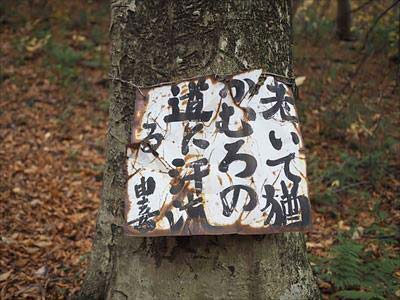 老いて猶
かむろの
道に汗流
る